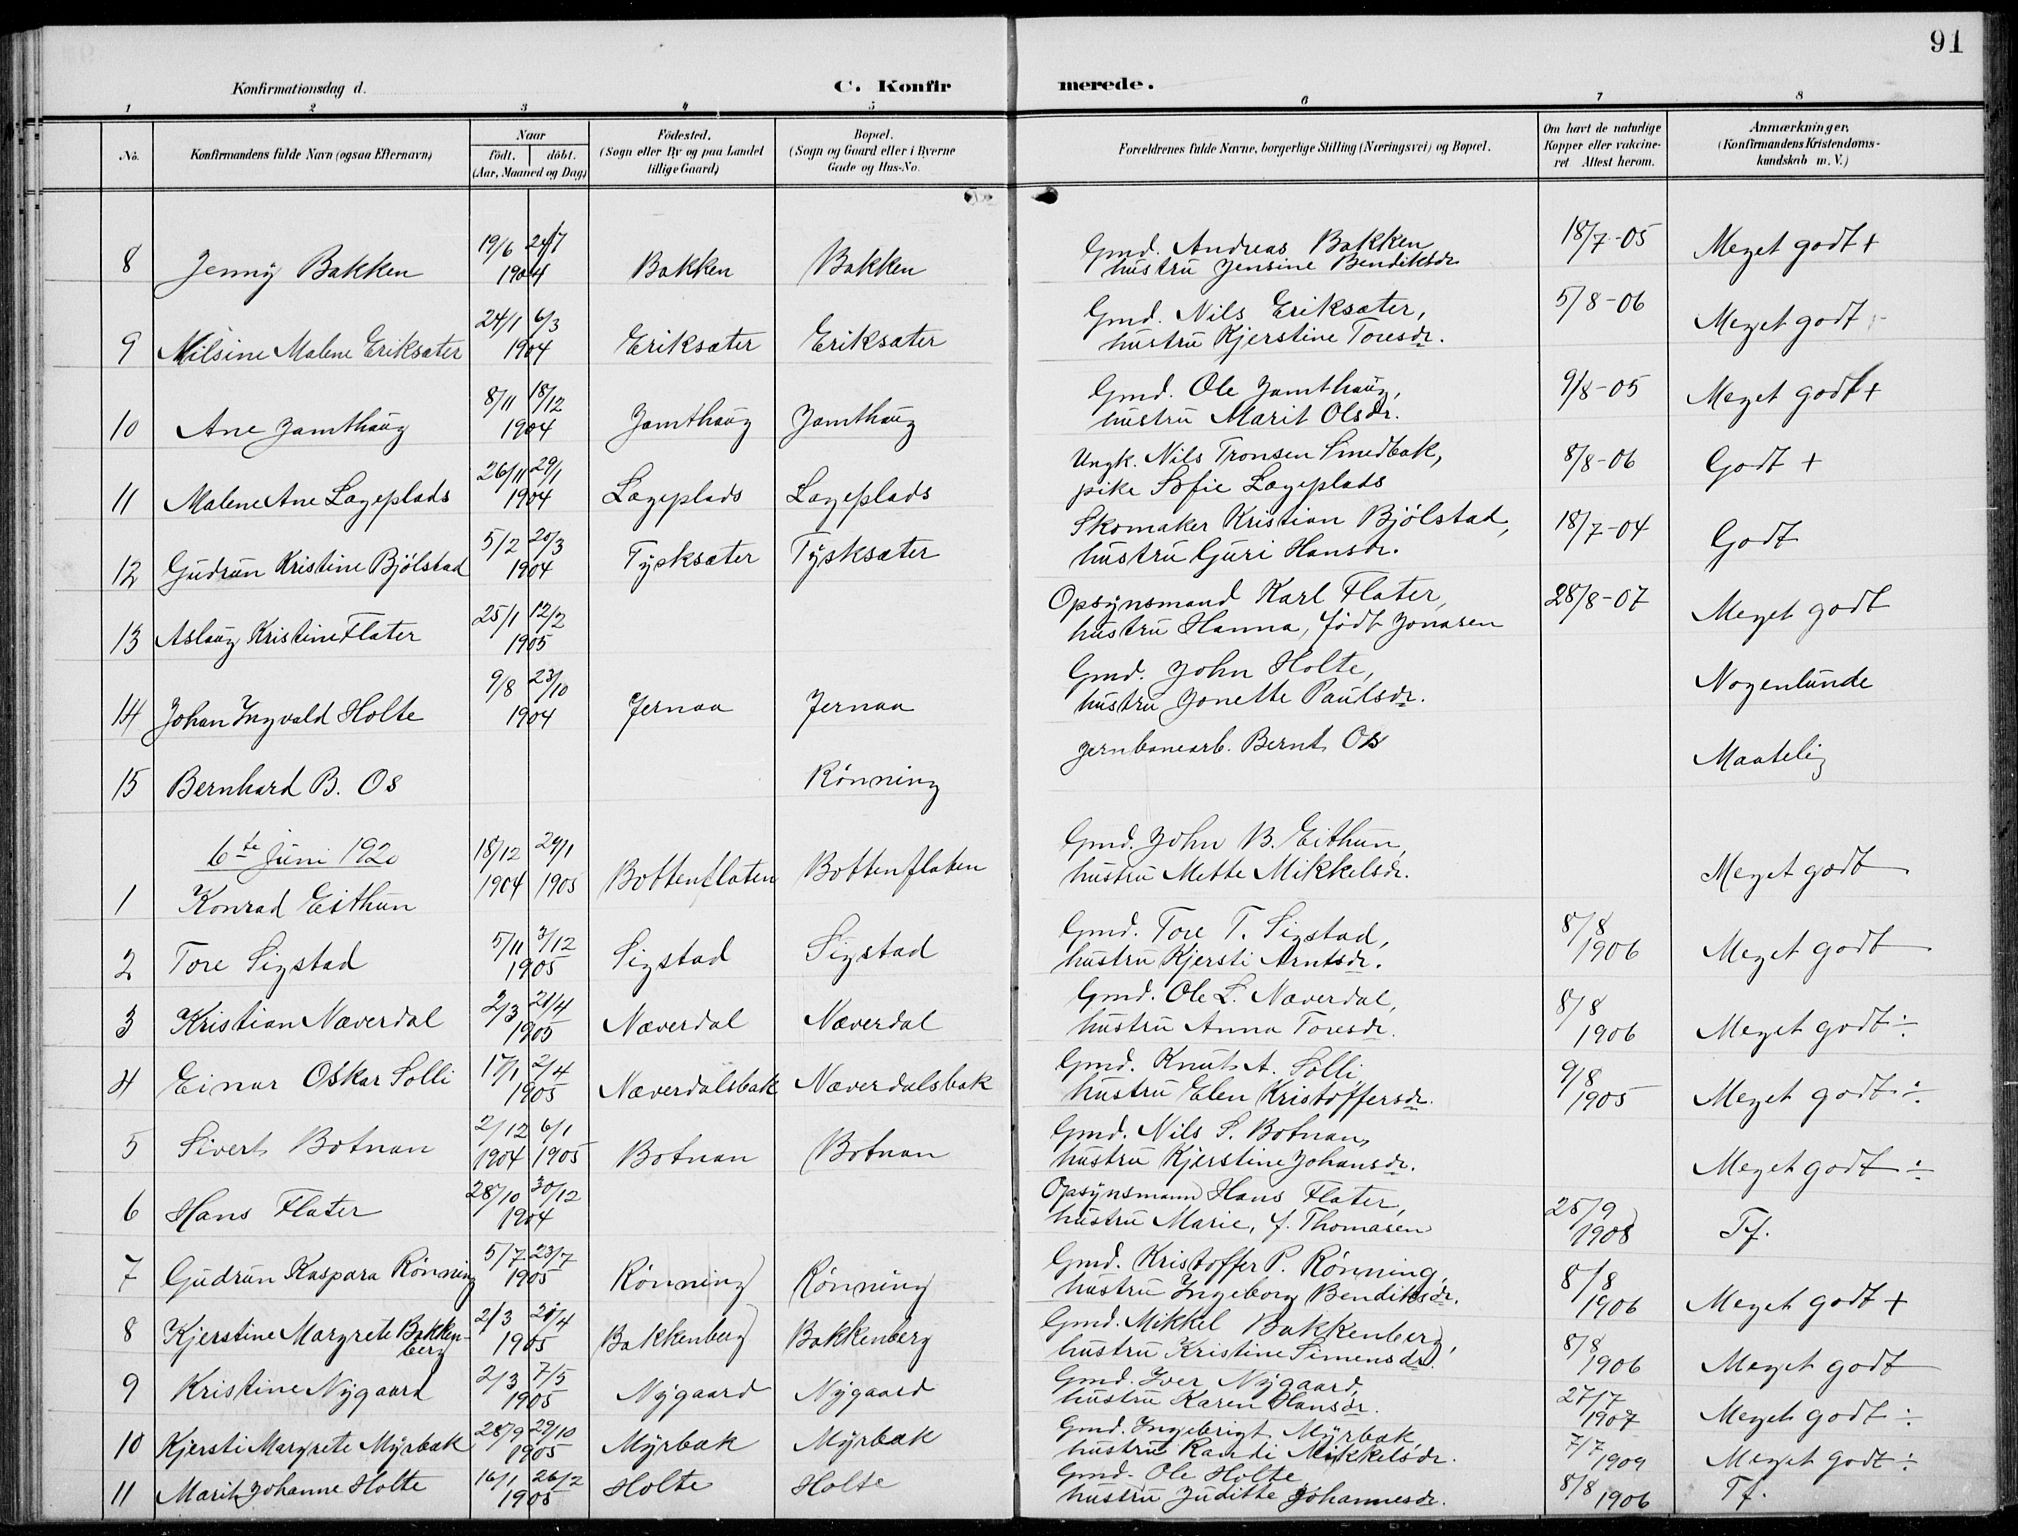 91
Konfirmationsdag d.
C. Konfirmerede.
1 2 3 4 5 6 7 8
No.
Konfirmandens fulde Navn (ogsaa Efternavn)
Naar
födt. döbt.
(Aar, Maaned og Dag)
Födested.
(Sogn eller By og paa Landet
tillige Gaard)
Bopæl.
(Sogn og Gaard eller i Byerne
Gade og Hus-No.
Forældrenes fulde Navne, borgerlige Stilling (Næringsvei) og Bopæl.
Om havt de naturlige
Kopper eller vaccine-
ret Attest herom.
Anmærkninger,
(Konfirmandens Kristendoms-
kundskab m. V.)
8 Jenny Bakken 19/6 24/7 1904 Bakken Bakken Gmd. Andreas Bakken 18/7-05 Meget godt +
hustru Jensine Bendiksdr
9 Nilsine Malene Eriksæter 24/1 6/3 1904 Eriksæter Eriksæter Gmd. Nils Eriksæter, 5/8-06 Meget godt
hustru Kjerstine Toresdr.
10 Ane Jamthaug 8/11 18/12 1904 Jamthaug Jamthaug Gmd. Ole Jamthaug, 9/8-05 Meget godt +
hustru Marit Olsdr.
11 Malene Ane Lægeplads 26/11 29/1 1904 Lægeplads Lægeplads Ungk. Nils Tronsen Smedbak, 8/8-06 Godt +
pike Sofie Lægeplads
12 Gudrun Kristine Bjölstad 5/2 20/3 1904 Tysksæter Tysksæter Skomaker Kristian Bjölstad, 18/7-04 Godt
hustru Guri Hansdr.
13 Aslaug Kristine Flater 25/1 12/2 1905 Opsynsmand Karl Flater, 28/8-07 Meget godt
hustru Hanna, födt Jonasen
14 Johan Ingvald Holte 9/8 23/10 1904 Jernaa Jernaa Gmd. John Holte, Nogenlunde
hustru Jonette Paulsdr.
15 Bernhard B. Os Rönning Jernbanearb. Bernt Os Maatelig
6te Juni 1920
1 Konrad Eithun 18/12 1904 29/1 1905 Bottenflaten Bottenflaten Gmd. John B. Eithun, Meget godt
hustru Mette Mikkelsdr.
2 Tore Sigstad 5/11 3/12 1905 Sigstad Sigstad Gmd. Tore T. Sigstad, 8/8 1906 Meget godt
hustru Kjersti Arntsdr.
3 Kristian Næverdal 2/3 21/4 1905 Næverdal Næverdal Gmd. Ole L. Næverdal, 8/8 1906 Meget godt ÷
hustru Anna Toresdr.
4 Einar Oskar Solli 17/1 2/4 1905 Næverdalsbak Næverdalsbak Gmd. Knut A. Solli 9/8 1905 Meget godt ÷
hustru Elen Kristoffersdr.
5 Sivert Botnan 2/12 1904 6/1 1905 Botnan Botnan Gmd. Nils S. Botnan, Meget godt ÷
hustru Kjerstine Johansdr.
6 Hans Flater 28/10 30/12 1904 Opsynsmann Hans Flater, 25/9 1908 Tf.
hustru Marie, f. Thomasen
7 Gudrun Kaspara Rönning 5/7 23/7 1905 Rönning Rönning Gmd. Kristoffer P. Rönning, 8/8 1906 Meget godt +
hustru Ingeborg Bendiksdr.
8 Kjerstine Margrete Bakken- 2/3 1905 Bakkenberg Bakkenberg Gmd. Mikkel Bakkenberg, 8/8 1906 Meget godt
berg hustru Kristine Simensdr.
9 Kristine Nygaard 2/3 7/5 1905 Nygaard Nygaard Gmd. Iver Nygaard, 27/7 1907 Meget godt ÷
hustru Karen Hansdr.
10 Kjersti Margrete Myrbak 28/9 29/10 1905 Myrbak Myrbak Gmd. Ingebrigt Myrbak 7/7 1909 Meget godt ÷
hustru Randi Mikkelsdr.
11 Marit Johanne Holte 16/1 26/2 1905 Holte Holte Gmd. Ole Holte 8/8 1906 Tf.
hustru Juditte Johannesdr.